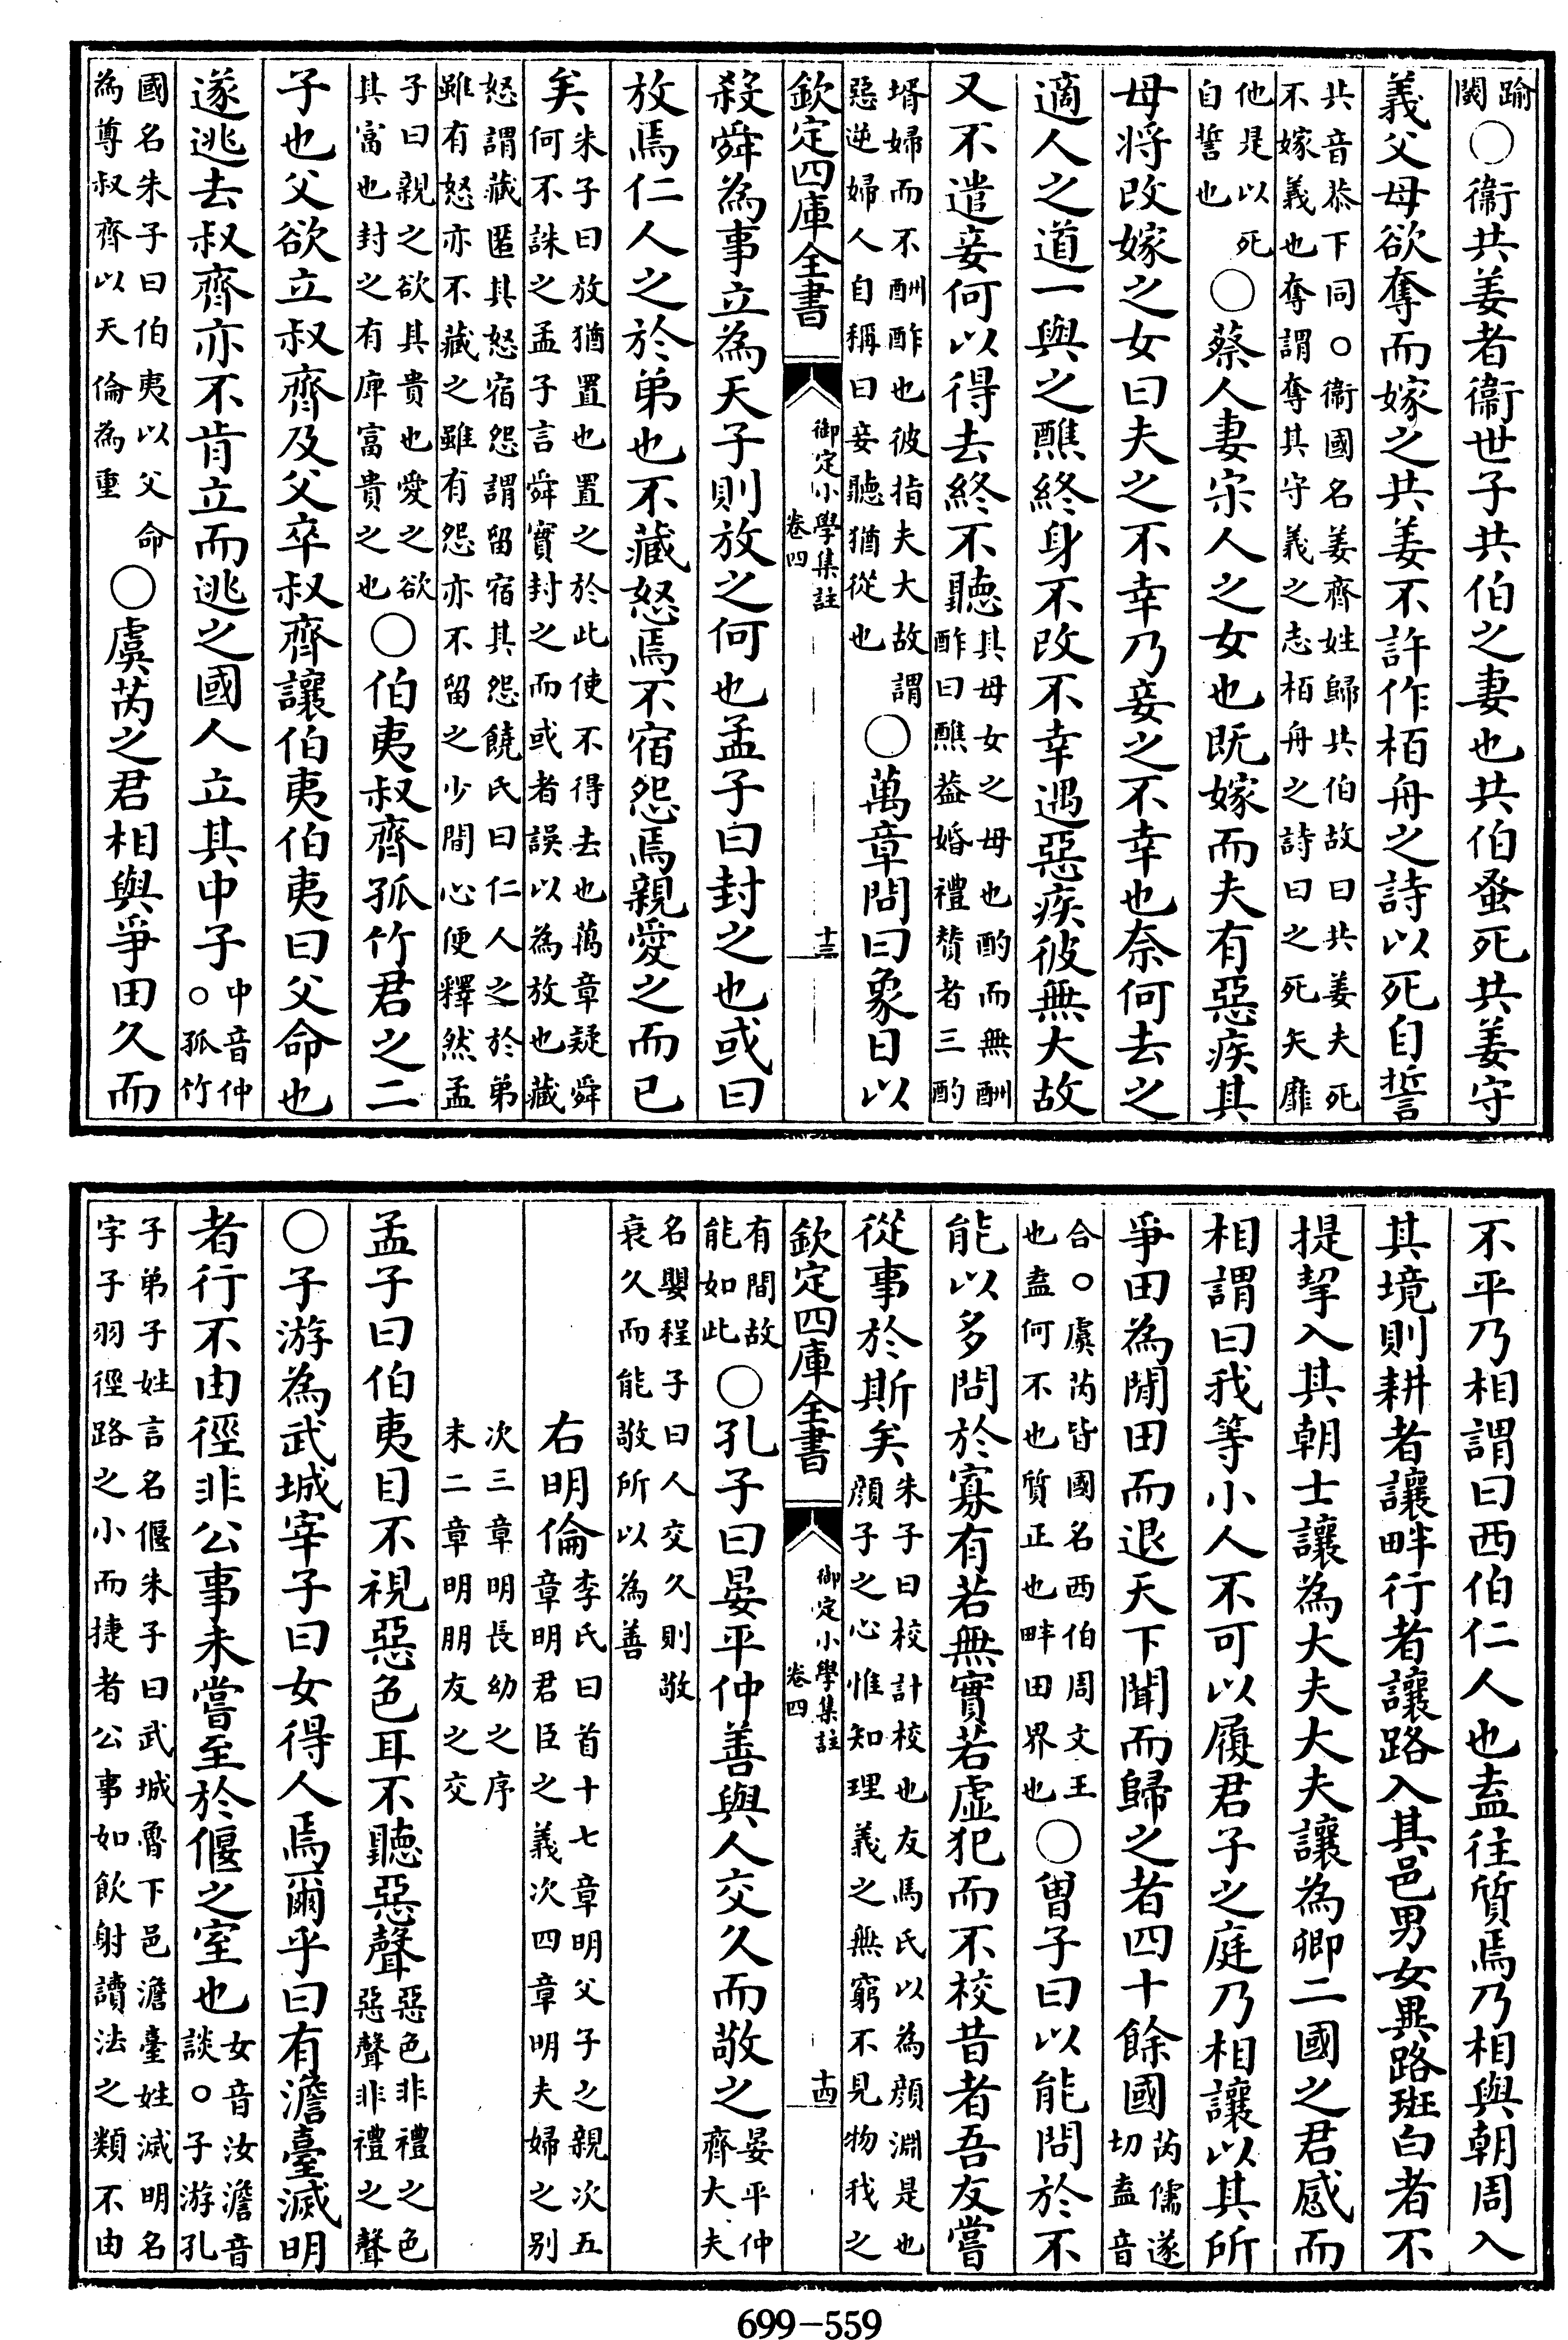 踰
閾○衛共姜者衛世子共伯之妻也共伯蚤死共姜守
義父母欲奪而嫁之共姜不許作栢舟之詩以死自誓
共音恭下同○衛國名姜齊姓歸共伯故曰共姜夫死
不嫁義也奪謂奪其守義之志栢舟之詩曰之死矢靡
他是以死
自誓也○蔡人妻宋人之女也既嫁而夫有惡疾其
母将改嫁之女曰夫之不幸乃妾之不幸也奈何去之
適人之道一與之醮終身不改不幸遇惡疾彼無大故
又不遣妾何以得去終不聽其母女之母也酌而無酬
酢曰醮葢婚禮賛者三酌
壻婦而不酬酢也彼指夫大故謂
惡逆婦人自稱曰妾聽猶從也○萬章問曰象日以
欽定四庫全書
御定小學集註
卷四
十三
殺舜為事立為天子則放之何也孟子曰封之也或曰
放焉仁人之於弟也不藏怒焉不宿怨焉親愛之而已
矣朱子曰放猶置也置之於此使不得去也萬章疑舜
何不誅之孟子言舜實封之而或者誤以為放也藏
怒謂藏匿其怒宿怨謂留宿其怨饒氏曰仁人之於弟
雖有怒亦不藏之雖有怨亦不留之少間心便釋然孟
子曰親之欲其貴也愛之欲
其富也封之有庳富貴之也○伯夷叔齊孤竹君之二
子也父欲立叔齊及父卒叔齊讓伯夷伯夷曰父命也
遂逃去叔齊亦不肯立而逃之國人立其中子中音仲
○孤竹
國名朱子曰伯夷以父命
為尊叔齊以天倫為重○虞芮之君相與爭田久而
不平乃相謂曰西伯仁人也盍往質焉乃相與朝周入
其境則耕者讓畔行者讓路入其邑男女異路班白者不
提挈入其朝士讓為大夫大夫讓為卿二國之君感而
相謂曰我等小人不可以履君子之庭乃相讓以其所
爭田為閒田而退天下聞而歸之者四十餘國芮儒遂
切盍音
合○虞芮皆國名西伯周文王
也盍何不也質正也畔田界也○曾子曰以能問於不
能以多問於寡有若無實若虛犯而不校昔者吾友嘗
從事於斯矣朱子曰校計校也友馬氏以為顔淵是也
顔子之心惟知理義之無窮不見物我之
欽定四庫全書
御定小學集註
卷四
十四
有間故
能如此○孔子曰晏平仲善與人交久而敬之晏平仲
齊大夫
名嬰程子曰人交久則敬
衰久而能敬所以為善
右明倫李氏曰首十七章明父子之親次五
章明君臣之義次四章明夫婦之别
次三章明長幼之序
末二章明朋友之交
孟子曰伯夷目不視惡色耳不聽惡聲惡色非禮之色
惡聲非禮之聲
○子游為武城宰子曰女得人焉爾乎曰有澹臺滅明
者行不由徑非公事未嘗至於偃之室也女音汝澹音
談○子游孔
子弟子姓言名偃朱子曰武城魯下邑澹臺姓滅明名
字子羽徑路之小而捷者公事如飲射讀法之類不由
699-559